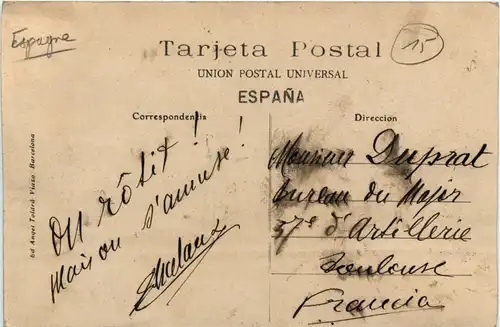 Espagne
15
Tarjeta Postal
UNION POSTAL UNIVERSAL
ESPAÑA
Correspondencia
Direccion
On rôtit !
Maison s'amuse !
Monsieur Duprat
bureau du Major
57e d'Artillerie
Toulouse
Francia
Ed Angel Toldrá Viazo Barcelona